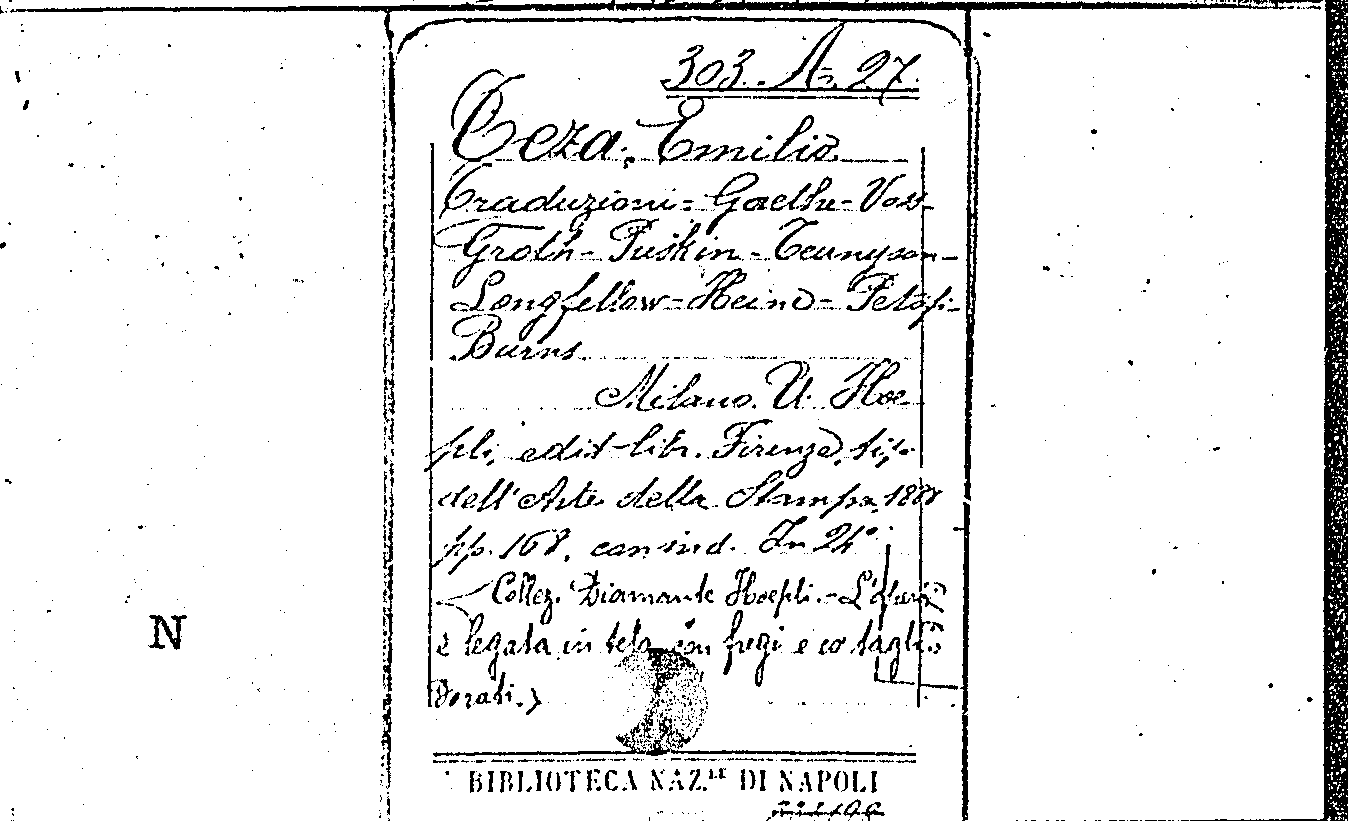 303. A. 27.
Teza, Emilio
Traduzioni = Goethe - Voss -
Groth - Puskin - Tennyson -
Longfellow - Heine - Petöfi -
Burns.
Milano. U. Hoe
pli, edit-libr. Firenze, tip.
dell'Arte della Stampa, 1888
pp. 168, con ind. In 24°
Collez. Diamante Hoepli. - L'opera
è legata in tela con fregi e co tagli
Dorati.)
N
BIBLIOTECA NAZ.LE DI NAPOLI